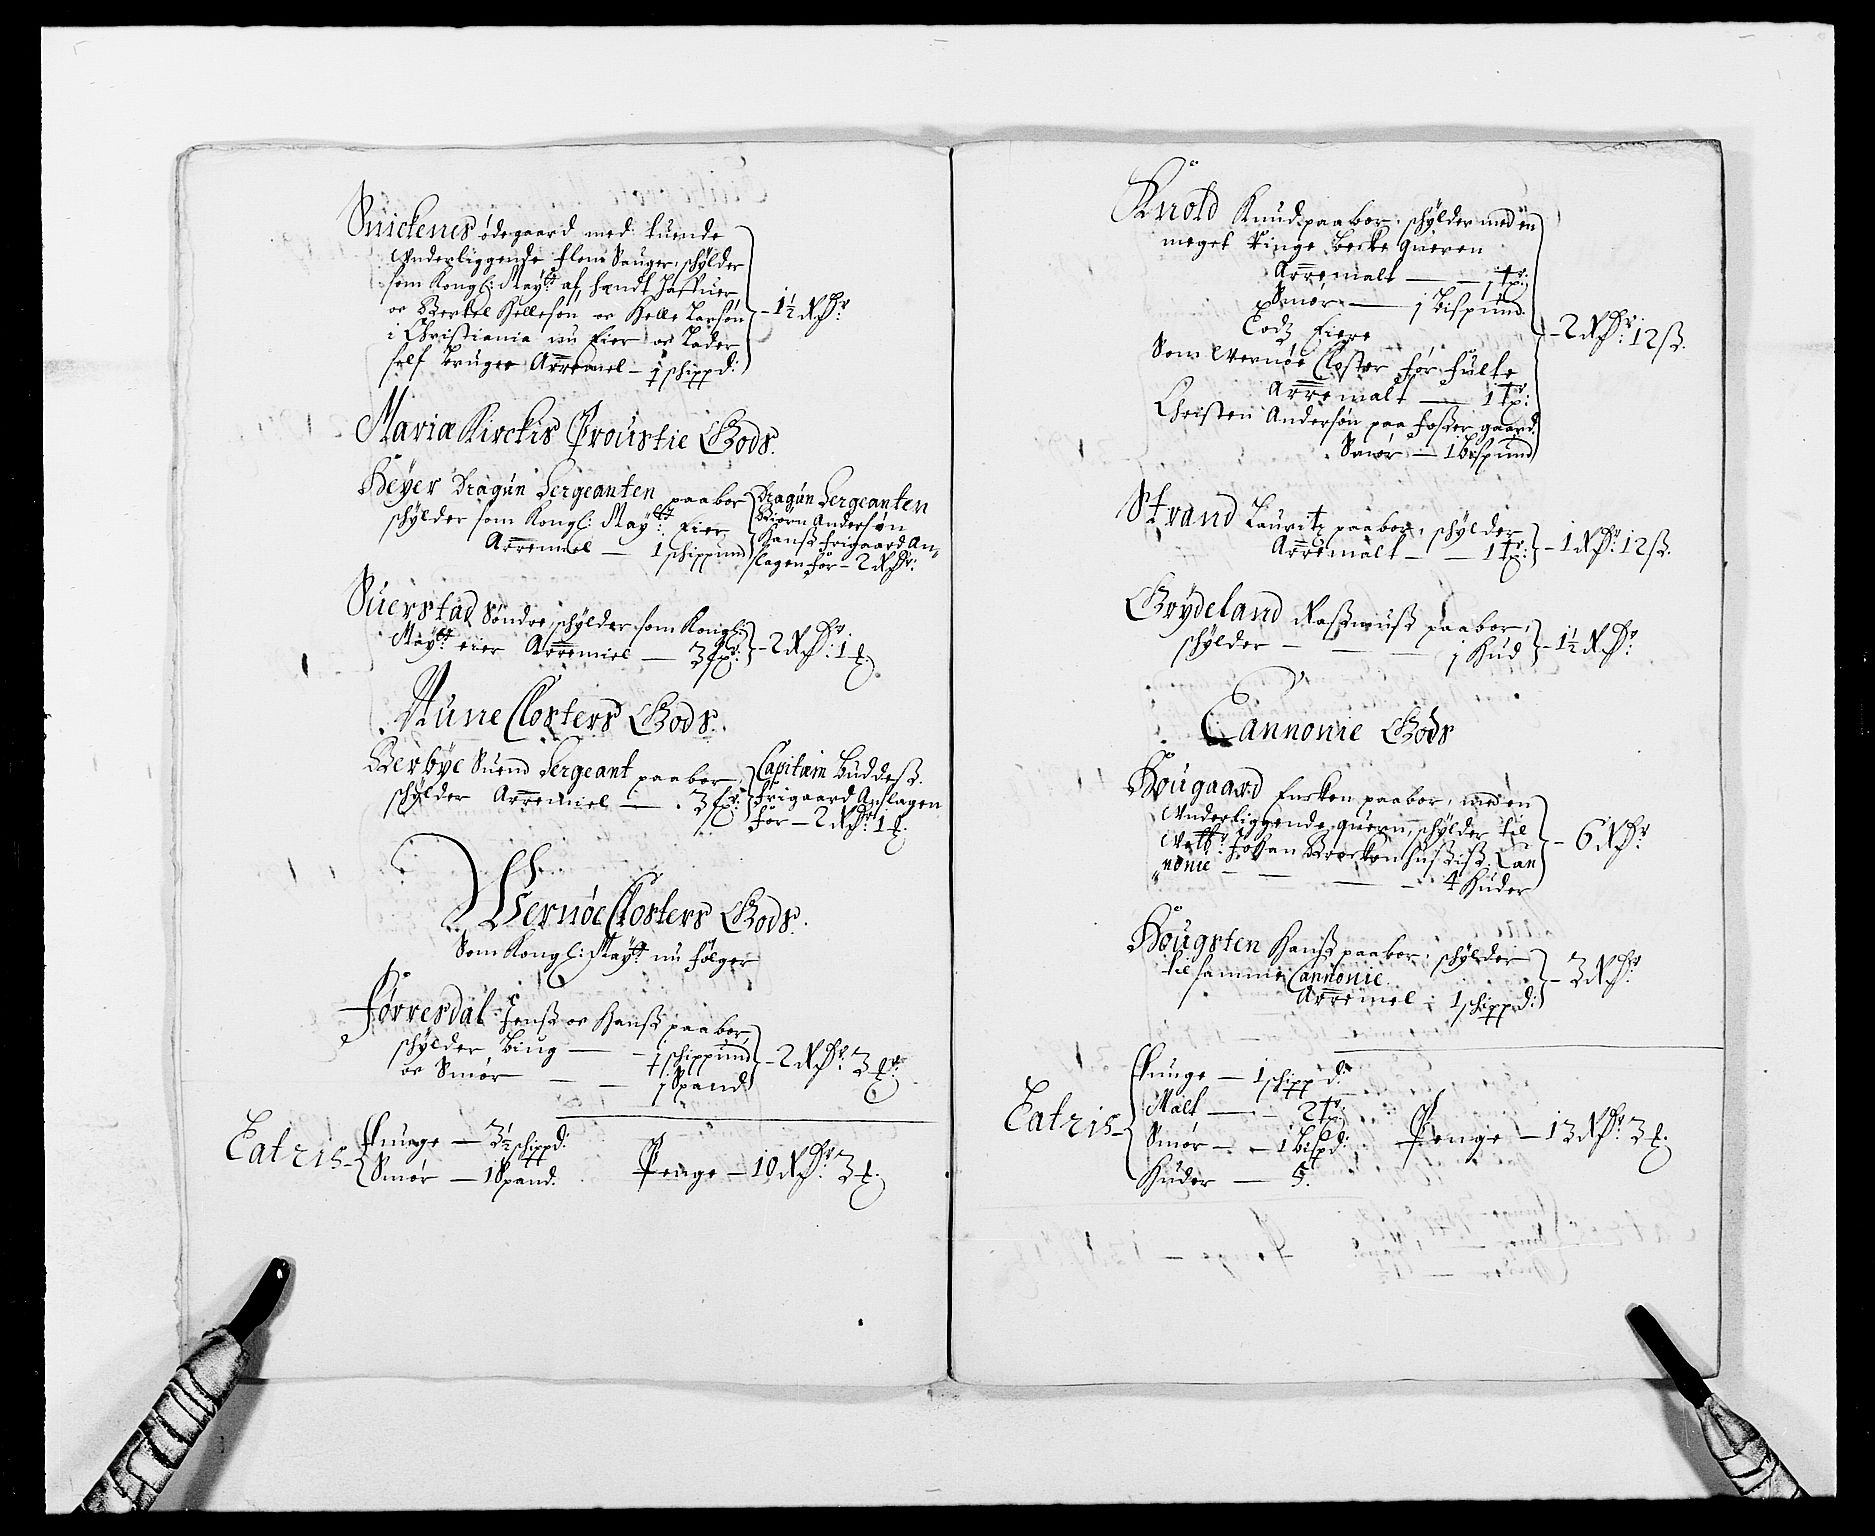 Snickenes ødegaard med tuende
Underliggende flom Sauger, schylder
som Kongl: Maytt af, hendt haffuer
oc Bertel Kellesøn oc Kelle Larsøn
i Christiania nu Eier oc Lader
self bruge Arremel - 1 schippd:
- 1½ Rdr:
Mariæ Kirckis Proustie Gods.
Heyer Dragun Sergeanten paabor
schylder som Kongl: Maytt: Eier
Arremel — 1 schippund
Dragun Sergeanten
Biørn Andersøn
Hanss frigaard An-
slagen før - 2 Rdr:
Suerstad Søndre, schylder som Kongl:
Maytt eier Arremiel — 3 fr:
- 2 Rdr: 1 ℔
Nune Closters Gods.
Berbye Suend Sergeant paabor,
schylder Arremiel — 3 fr:
Capitain Buddess
frigaard Anslagen
før — 2 Rdr: 1 ℔.
Wernøe Closters Gods.
Som Kongl: Maytt nu følger
Førresdal Jenss oc Hanss paabor,
schylder biug — 1 schippund
oc Smør — — 1 Spand
- 2 Rdr: 3 ℔
Latris -
Tunge — 3½ schippd:
Smør — 1 Spand.
Penge — 10 Rdr: 3 ℔.
Knold Knud paabor, schylder med en
meget ringe becke Queren
Arremalt — 1 tr:
Smør — 1 bispund
Lodz Eiere
Som Wernøe Closter før fulte
Arremalt — 1 tr:
Christen Andersøn paa fosser gaard
Smør — 1 bispund
- 2 Rdr: 12 ss.
Strand Lauritz paabor, schylder
Arremalt — 1 tr:
- 1 Rdr: 12 ss.
Grydeland Rassmuss paabor,
schylder — — — 1 Hud
- 1½ Rdr:
Cannonie Gods
Hougaard Ensken paabor, med en
Underliggende quern, schylder til
Johan Brockenhussiss Can
nonie — — — 4 Huder
- 6 Rdr
Hougsten Hanss paabor, schylder
til samme Cannonie
Arremel - 1 schippd:
- 3 Rdr
Latris -
Tunge — 1 schippd:
Malt — 2 tr:
Smør — 1 bispd:
Huder — 5.
Penge — 13 Rdr: 3 ℔.